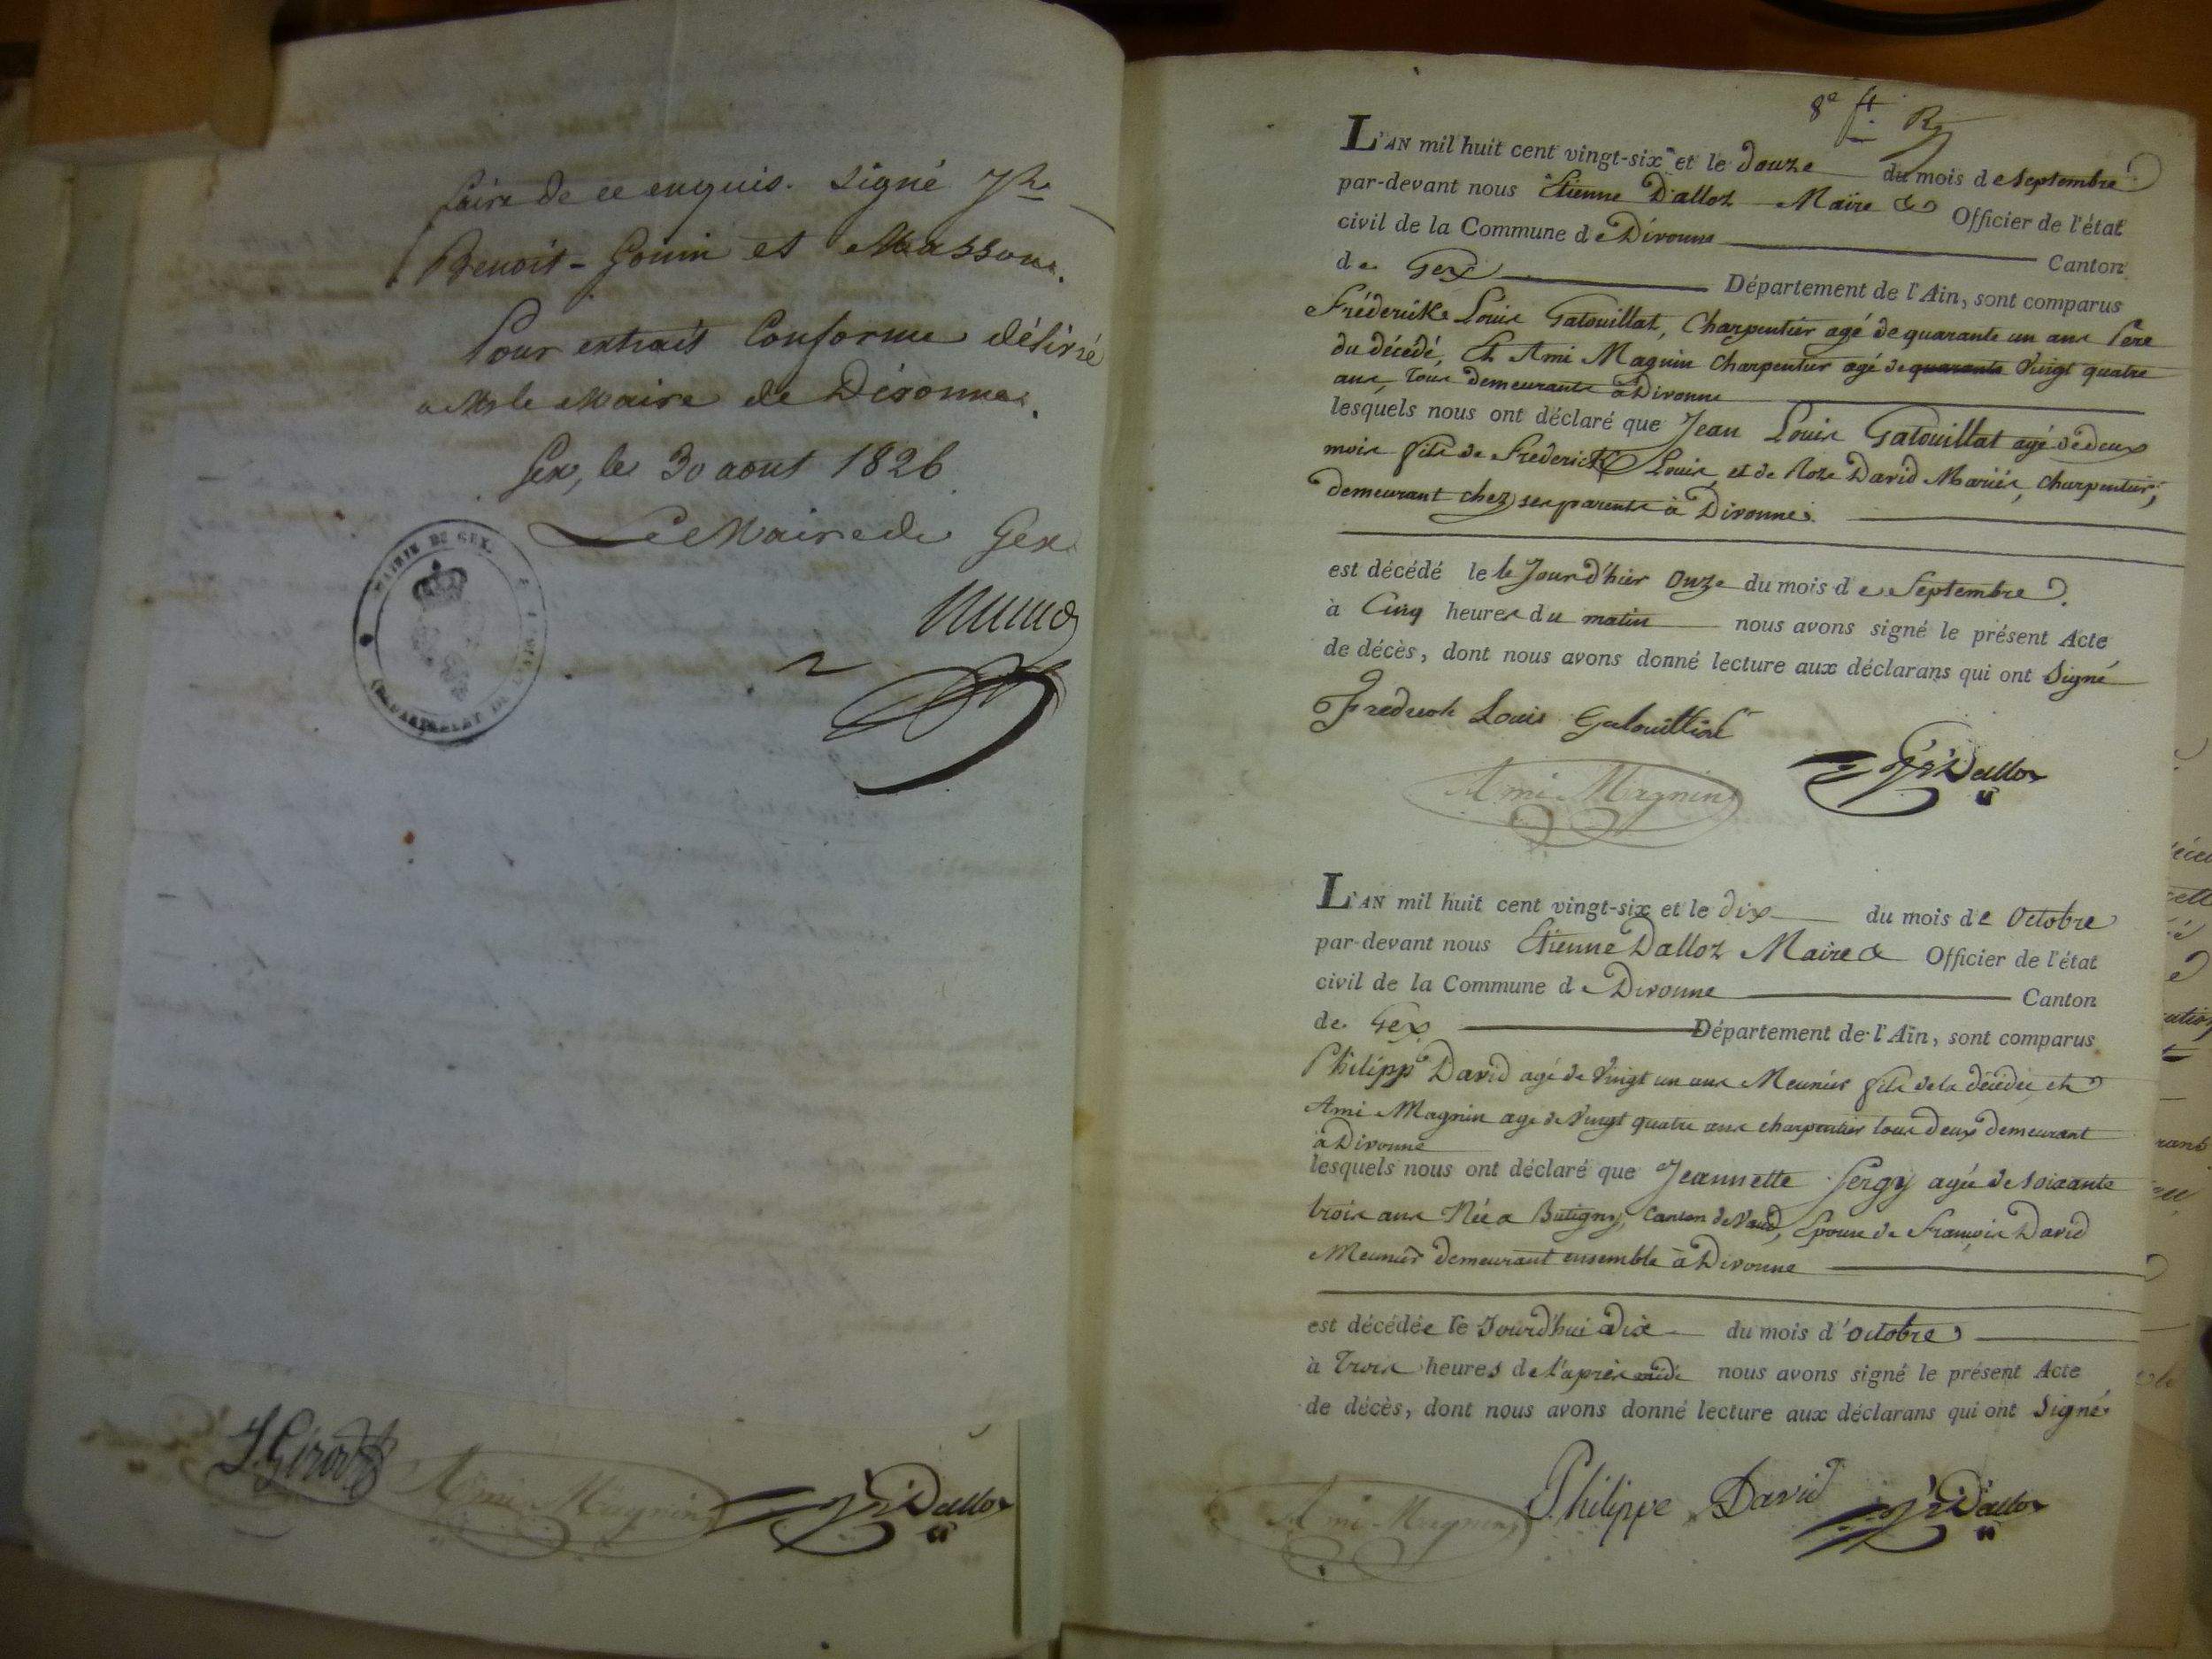 faire de ce enquis. signé Jh
Benoit - Gouin et Masson.
Pour extrait Conforme délivré
a Mr le Maire de Divonne.
Gex, le 30 aout 1826
Le Maire de Gex
MAIRIE DE GEX.
(DÉPARTEMENT DE L'AIN)
J. Girod
Ami Magnin
Dalloz
8e ft
L'AN mil huit cent vingt-six et le douze du mois de Septembre
par-devant nous Etienne Dalloz Maire & Officier de l'état
civil de la Commune de Divonne Canton
de Gex Département de l'Ain, sont comparus
Fréderik Louis Gatouillat, Charpentier agé de quarante un ans Père
du décédé, Et Ami Magnin Charpentier agé de quarante Vingt quatre
ans, Tous demeurants à Divonne
lesquels nous ont déclaré que Jean Louis Gatouillat agé de deux
mois fils de Fréderick Louis, et de Roze David Mariés, charpentier,
demeurant chez ses parents à Divonne.
est décédé le le Jour d'hier Onze du mois de Septembre
à Cinq heures du matin nous avons signé le présent Acte
de décès, dont nous avons donné lecture aux déclarans qui ont Signé
Fredrich Louis Gatouilliat
Ami Magnin
Dalloz
L'AN mil huit cent vingt-six et le dix du mois de Octobre
par-devant nous Etienne Dalloz Maire & Officier de l'état
civil de la Commune de Divonne Canton
de Gex Département de l'Ain, sont comparus
Philipp David agé de Vingt un ans Meunier fils de la décédée et
Ami Magnin agé de Vingt quatre ans charpentier tous deux demeurant
à Divonne
lesquels nous ont déclaré que Jeannette Sergy agée de soixante
trois ans Née a Butigny, Canton de Vaud, Epouse de François David
Meunier demeurant ensemble à Divonne
est décédée le Jourd'hui dix du mois d'octobre
à Trois heures de l'après midi nous avons signé le présent Acte
de décès, dont nous avons donné lecture aux déclarans qui ont Signé
Ami Magnin
Philippe David
Dalloz